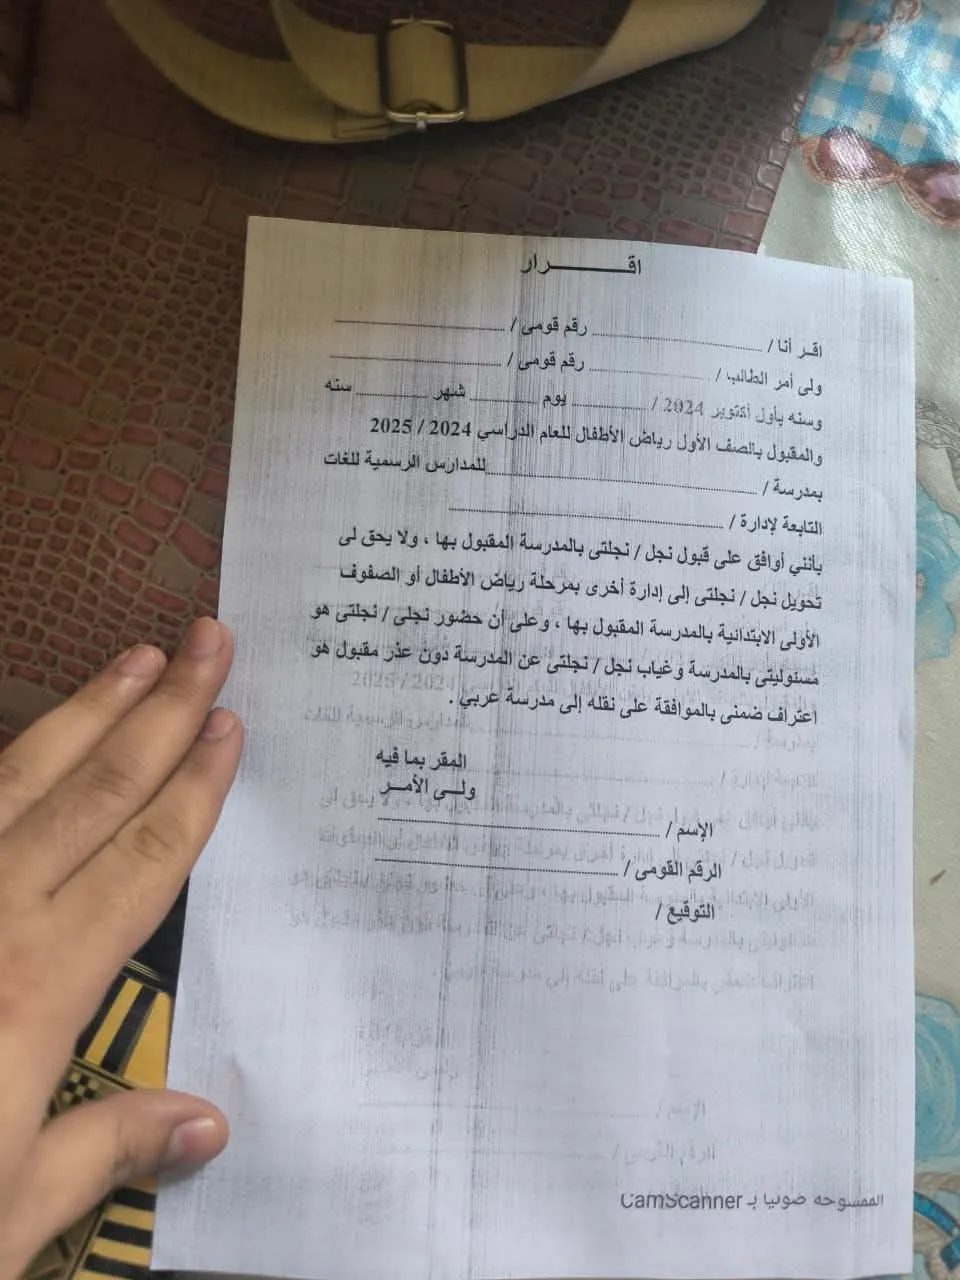 اقـــــرار
اقـر أنا / .......... رقم قومى / ..........
ولى أمر الطالب / .......... رقم قومى / ..........
وسنه بأول أكتوبر 2024 / .......... يوم .......... شهر .......... سنه
والمقبول بالصف الأول رياض الأطفال للعام الدراسي 2024 / 2025
بمدرسة / .......... للمدارس الرسمية للغات
التابعة لإدارة / ..........
بأنني أوافق على قبول نجل / نجلتى بالمدرسة المقبول بها ، ولا يحق لى
تحويل نجل / نجلتى إلى إدارة أخرى بمرحلة رياض الأطفال أو الصفوف
الأولى الابتدائية بالمدرسة المقبول بها ، وعلى أن حضور نجلى / نجلتى هو
مسئوليتى بالمدرسة وغياب نجل / نجلتى عن المدرسة دون عذر مقبول هو
اعتراف ضمنى بالموافقة على نقله إلى مدرسة عربي .
المقر بما فيه
ولـى الأمـر
الإسم / ..........
الرقم القومى / ..........
التوقيع /
الممسوحه ضوئيا بـ CamScanner